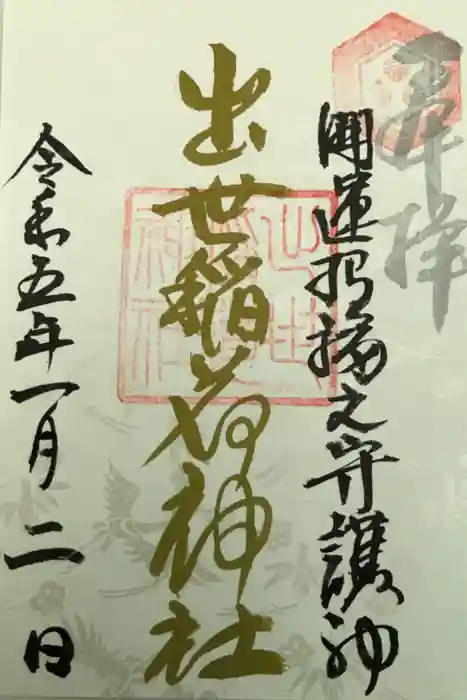 奉拝
開運招福之守護神
出世稲荷神社
令和五年一月二日